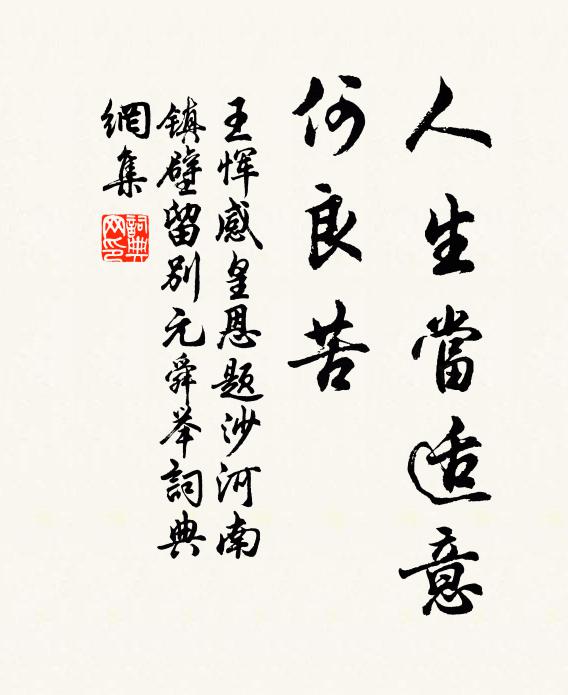 人生當适意
何良苦
王恽感皇恩题沙河南
镇壁留别元舜举詞典
網集
詞典网印